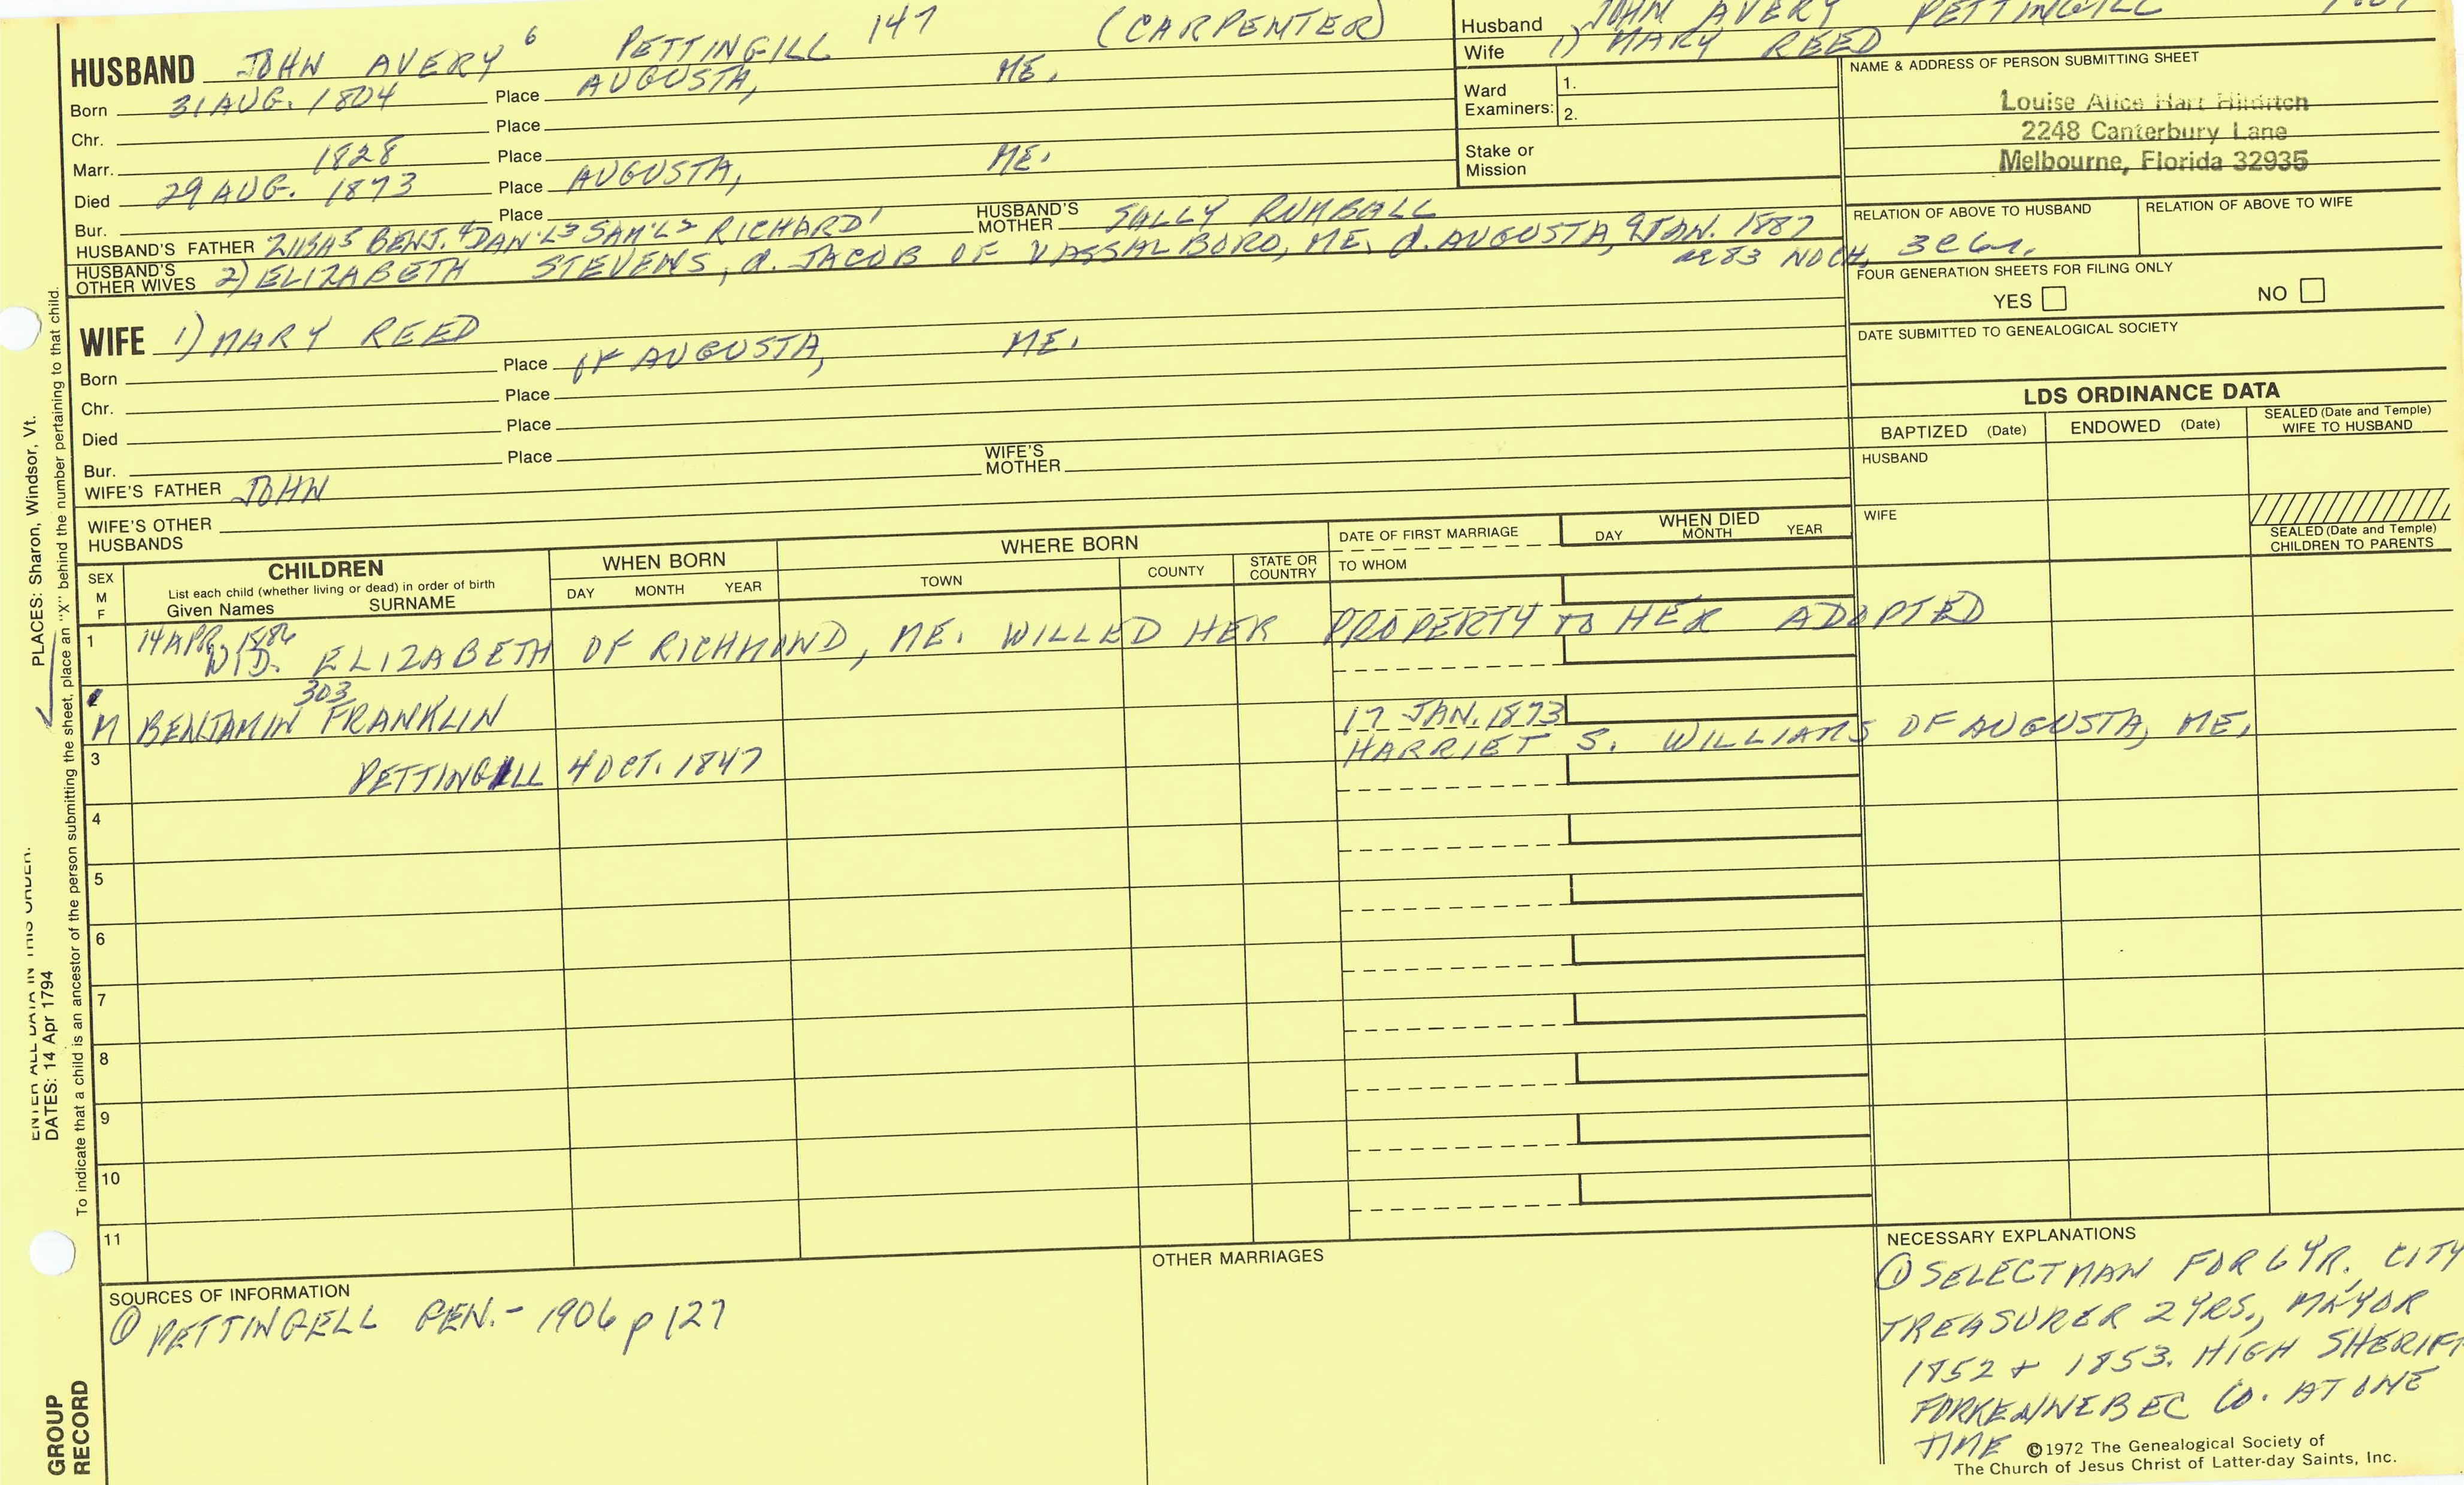 HUSBAND JOHN AVERY 6 PETTINGILL 147 (CARPENTER)
Born 31 AUG. 1804 Place AUGUSTA, ME.
Chr. Place
Marr. 1828 Place
Died 29 AUG. 1873 Place AUGUSTA, ME.
Bur. Place
HUSBAND'S FATHER BENJ. 4 DAN'L 3 SAM'L 2 RICHARD 1 HUSBAND'S MOTHER SALLY RUMBALL
HUSBAND'S OTHER WIVES 2) ELIZABETH STEVENS, d. JACOB OF VASSALBORO, ME. d. AUGUSTA, 9 JAN. 1887
ae 83 NO CH.
Husband JOHN AVERY PETTINGILL
Wife 1) MARY REED
Ward Examiners: 1.
2.
Stake or Mission
NAME & ADDRESS OF PERSON SUBMITTING SHEET
Louise Alice Hart Hilditch
2248 Canterbury Lane
Melbourne, Florida 32935
RELATION OF ABOVE TO HUSBAND RELATION OF ABOVE TO WIFE
FOUR GENERATION SHEETS FOR FILING ONLY
YES NO
DATE SUBMITTED TO GENEALOGICAL SOCIETY
WIFE 1) MARY REED
Born Place OF AUGUSTA, ME.
Chr. Place
Died Place
Bur. Place
WIFE'S FATHER JOHN WIFE'S MOTHER
WIFE'S OTHER HUSBANDS
LDS ORDINANCE DATA
BAPTIZED (Date) ENDOWED (Date) SEALED (Date and Temple) WIFE TO HUSBAND
HUSBAND
WIFE
SEALED (Date and Temple) CHILDREN TO PARENTS
SEX M F
CHILDREN
List each child (whether living or dead) in order of birth
Given Names SURNAME
WHEN BORN
DAY MONTH YEAR
WHERE BORN
TOWN COUNTY STATE OR COUNTRY
DATE OF FIRST MARRIAGE
TO WHOM
WHEN DIED
DAY MONTH YEAR
1 14 APR. 1886
WID. ELIZABETH OF RICHMOND, ME. WILLED HER PROPERTY TO HER ADOPTED
303
M BENJAMIN FRANKLIN 17 JAN. 1873
HARRIET S. WILLIAMS OF AUGUSTA, ME.
3 PETTINGILL 4 OCT. 1847
4
5
6
7
8
9
10
11
SOURCES OF INFORMATION
① PETTINGELL GEN. - 1906 p 127
OTHER MARRIAGES
NECESSARY EXPLANATIONS
① SELECTMAN FOR 6 YR. CITY
TREASURER 2 YRS., MAYOR
1852 + 1853. HIGH SHERIFF
FOR KENNEBEC CO. AT ONE
TIME
©1972 The Genealogical Society of
The Church of Jesus Christ of Latter-day Saints, Inc.
DATES: 14 Apr 1794
PLACES: Sharon, Windsor, Vt.
ENTER ALL DATA IN THIS ORDER:
To indicate that a child is an ancestor of the person submitting the sheet, place an "X" behind the number pertaining to that child.
GROUP
RECORD